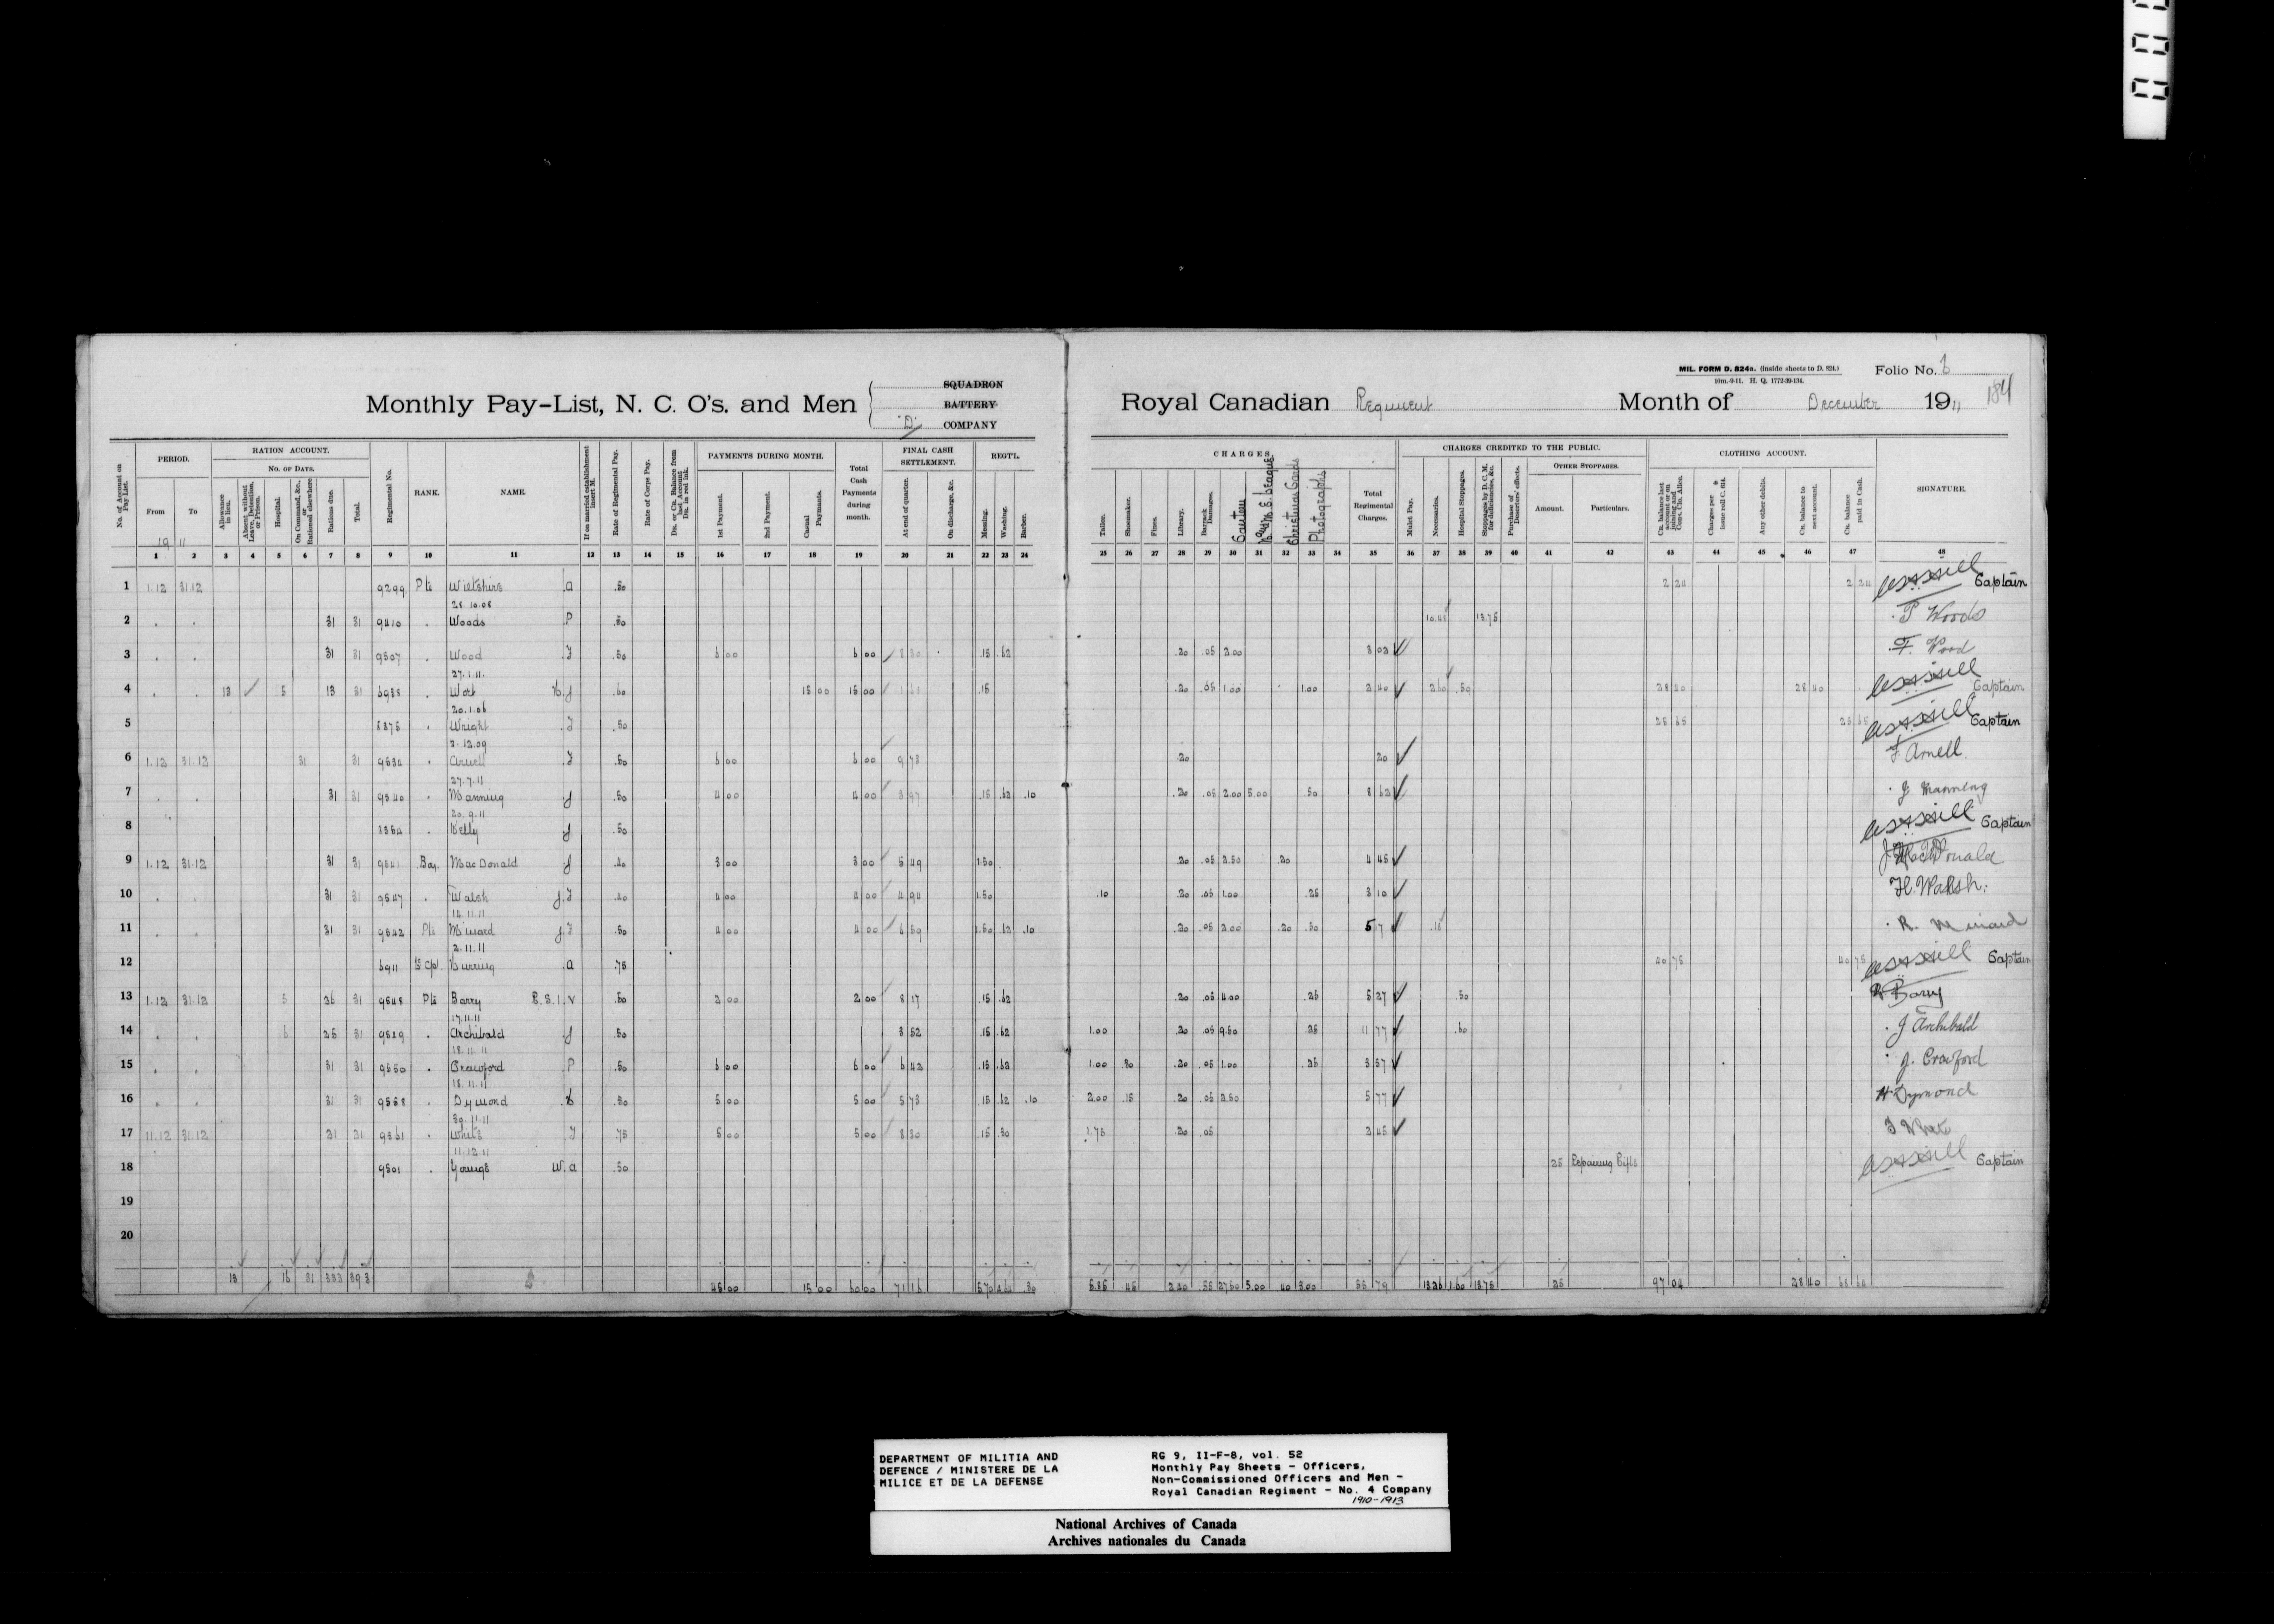 MIL. FORM D. 824a. (inside sheets to D. 824.)
10m.-9-11. H. Q. 1772-39-134.
Folio No. 6
184
Monthly Pay-List, N. C. O's. and Men
SQUADRON
BATTERY
"D" COMPANY
Royal Canadian Regiment
Month of December 1911
No. of Account on Pay List.
PERIOD.
From
To
1911
RATION ACCOUNT.
No. of Days.
Allowance in lieu.
Absent without Leave, Detention, or Prison.
Hospital.
On Command, &c., or Rationed elsewhere
Rations due.
Total.
Regimental No.
RANK.
NAME.
If on married establishment insert M.
Rate of Regimental Pay.
Rate of Corps Pay.
Dr. or Cr. Balance from last Account Dr. in red ink.
PAYMENTS DURING MONTH.
1st Payment.
2nd Payment.
Casual Payments.
Total Cash Payments during month.
FINAL CASH SETTLEMENT.
At end of quarter.
On discharge, &c.
REGT'L
Messing.
Washing.
Barber.
CHARGES
Tailor.
Shoemaker.
Fines.
Library.
Barrack Damages.
Canteen
Christmas Cards
Photographs
Total Regimental Charges.
CHARGES CREDITED TO THE PUBLIC.
Mulct Pay.
Necessaries.
Hospital Stoppages.
Stoppages by D. C. M. for deficiencies, &c.
Purchase of Deserters' effects.
OTHER STOPPAGES.
Amount.
Particulars.
CLOTHING ACCOUNT.
Cr. balance last account or on joining and Cons. Clo. Allce.
Charges per issue roll C. 614.
Any other debits.
Cr. balance to next account.
Cr. balance paid in Cash.
SIGNATURE.
1 2 3 4 5 6 7 8 9 10 11 12 13 14 15 16 17 18 19 20 21 22 23 24 25 26 27 28 29 30 31 32 33 34 35 36 37 38 39 40 41 42 43 44 45 46 47 48
1 1.12 31.12 9299 Pte Wiltshire A .50 2 24 2 24 Captain
28.10.08
2 31 31 9410 Woods P .50 13.75 P Woods
3 31 31 9507 Wood F .50 6 00 6 00 8 30 .15 .62 .20 .05 2.00 3 02 F. Wood
27.1.11.
4 13 5 13 31 6938 .60 15 00 15 00 .15 .20 .05 1.00 1.00 2 40 2 60 .50 28 40 28 40 Captain
20.1.06
5 8375 Wright F .50 25 65 25 65 Captain
2.12.09
6 1.12 31.12 31 31 Arnell F .50 6 00 6 00 9 73 .20 20 F. Arnell
27.7.11
7 31 31 9540 Manning J .50 4 00 4 00 3 97 .15 .62 .10 .20 .05 2.00 5.00 .50 8 62 J Manning
20.9.11
8 Kelly J .50 Captain
9 1.12 31.12 31 31 9541 Boy. MacDonald J .40 3 00 3 00 5 49 1.50 .20 .05 2.50 .20 4 45 J MacDonald
10 31 31 9547 Walsh J.F .40 4 00 4 00 4 94 1.50 .10 .20 .05 1.00 .25 3 10 H. Walsh.
14.11.11
11 31 31 9542 Pte Minard J.F .50 4 00 4 00 6 59 1.50 .62 .10 .20 .05 2.00 .20 .50 5 17 .15 R. Minard
2.11.11
12 6911 A .75 40 75 40 75 Captain
13 1.12 31.12 5 26 31 9548 Pte Barry R.S.I.V .50 2 00 2 00 8 17 .15 .62 .20 .05 4.00 .25 5 27 .50 R Barry
17.11.11
14 6 25 31 9549 Archibald J .50 3 52 .15 .62 1.00 .20 .05 9.50 .25 11 77 .60 J Archibald
18.11.11
15 31 31 9550 Crawford P .50 6 00 6 00 6 42 .15 .62 1.00 .30 .20 .05 1.00 .25 3 57 J. Crawford
18.11.11
16 31 31 9558 Dymond .50 5 00 5 00 5 73 .15 .62 .10 2.00 .15 .20 .05 2.50 5 77 H Dymond
30.11.11
17 11.12 31.12 21 21 9561 White F .75 5 00 5 00 8 30 .15 .30 1.75 .20 .05 2 45 White
11.12.11
18 9501 Youngs W.A .50 25 Repairing Rifle Captain
19
20
13 16 31 333 393 45 00 15 00 60 00 71 16 5.70 .30 5.85 .45 2.20 .55 27.50 5.00 40 3.00 55 79 13.26 1.60 13.75 25 97 04 28 40 68 64
DEPARTMENT OF MILITIA AND
DEFENCE / MINISTERE DE LA
MILICE ET DE LA DEFENSE
RG 9, II-F-8, vol. 52
Monthly Pay Sheets - Officers,
Non-Commissioned Officers and Men -
Royal Canadian Regiment - No. 4 Company
1910-1913
National Archives of Canada
Archives nationales du Canada